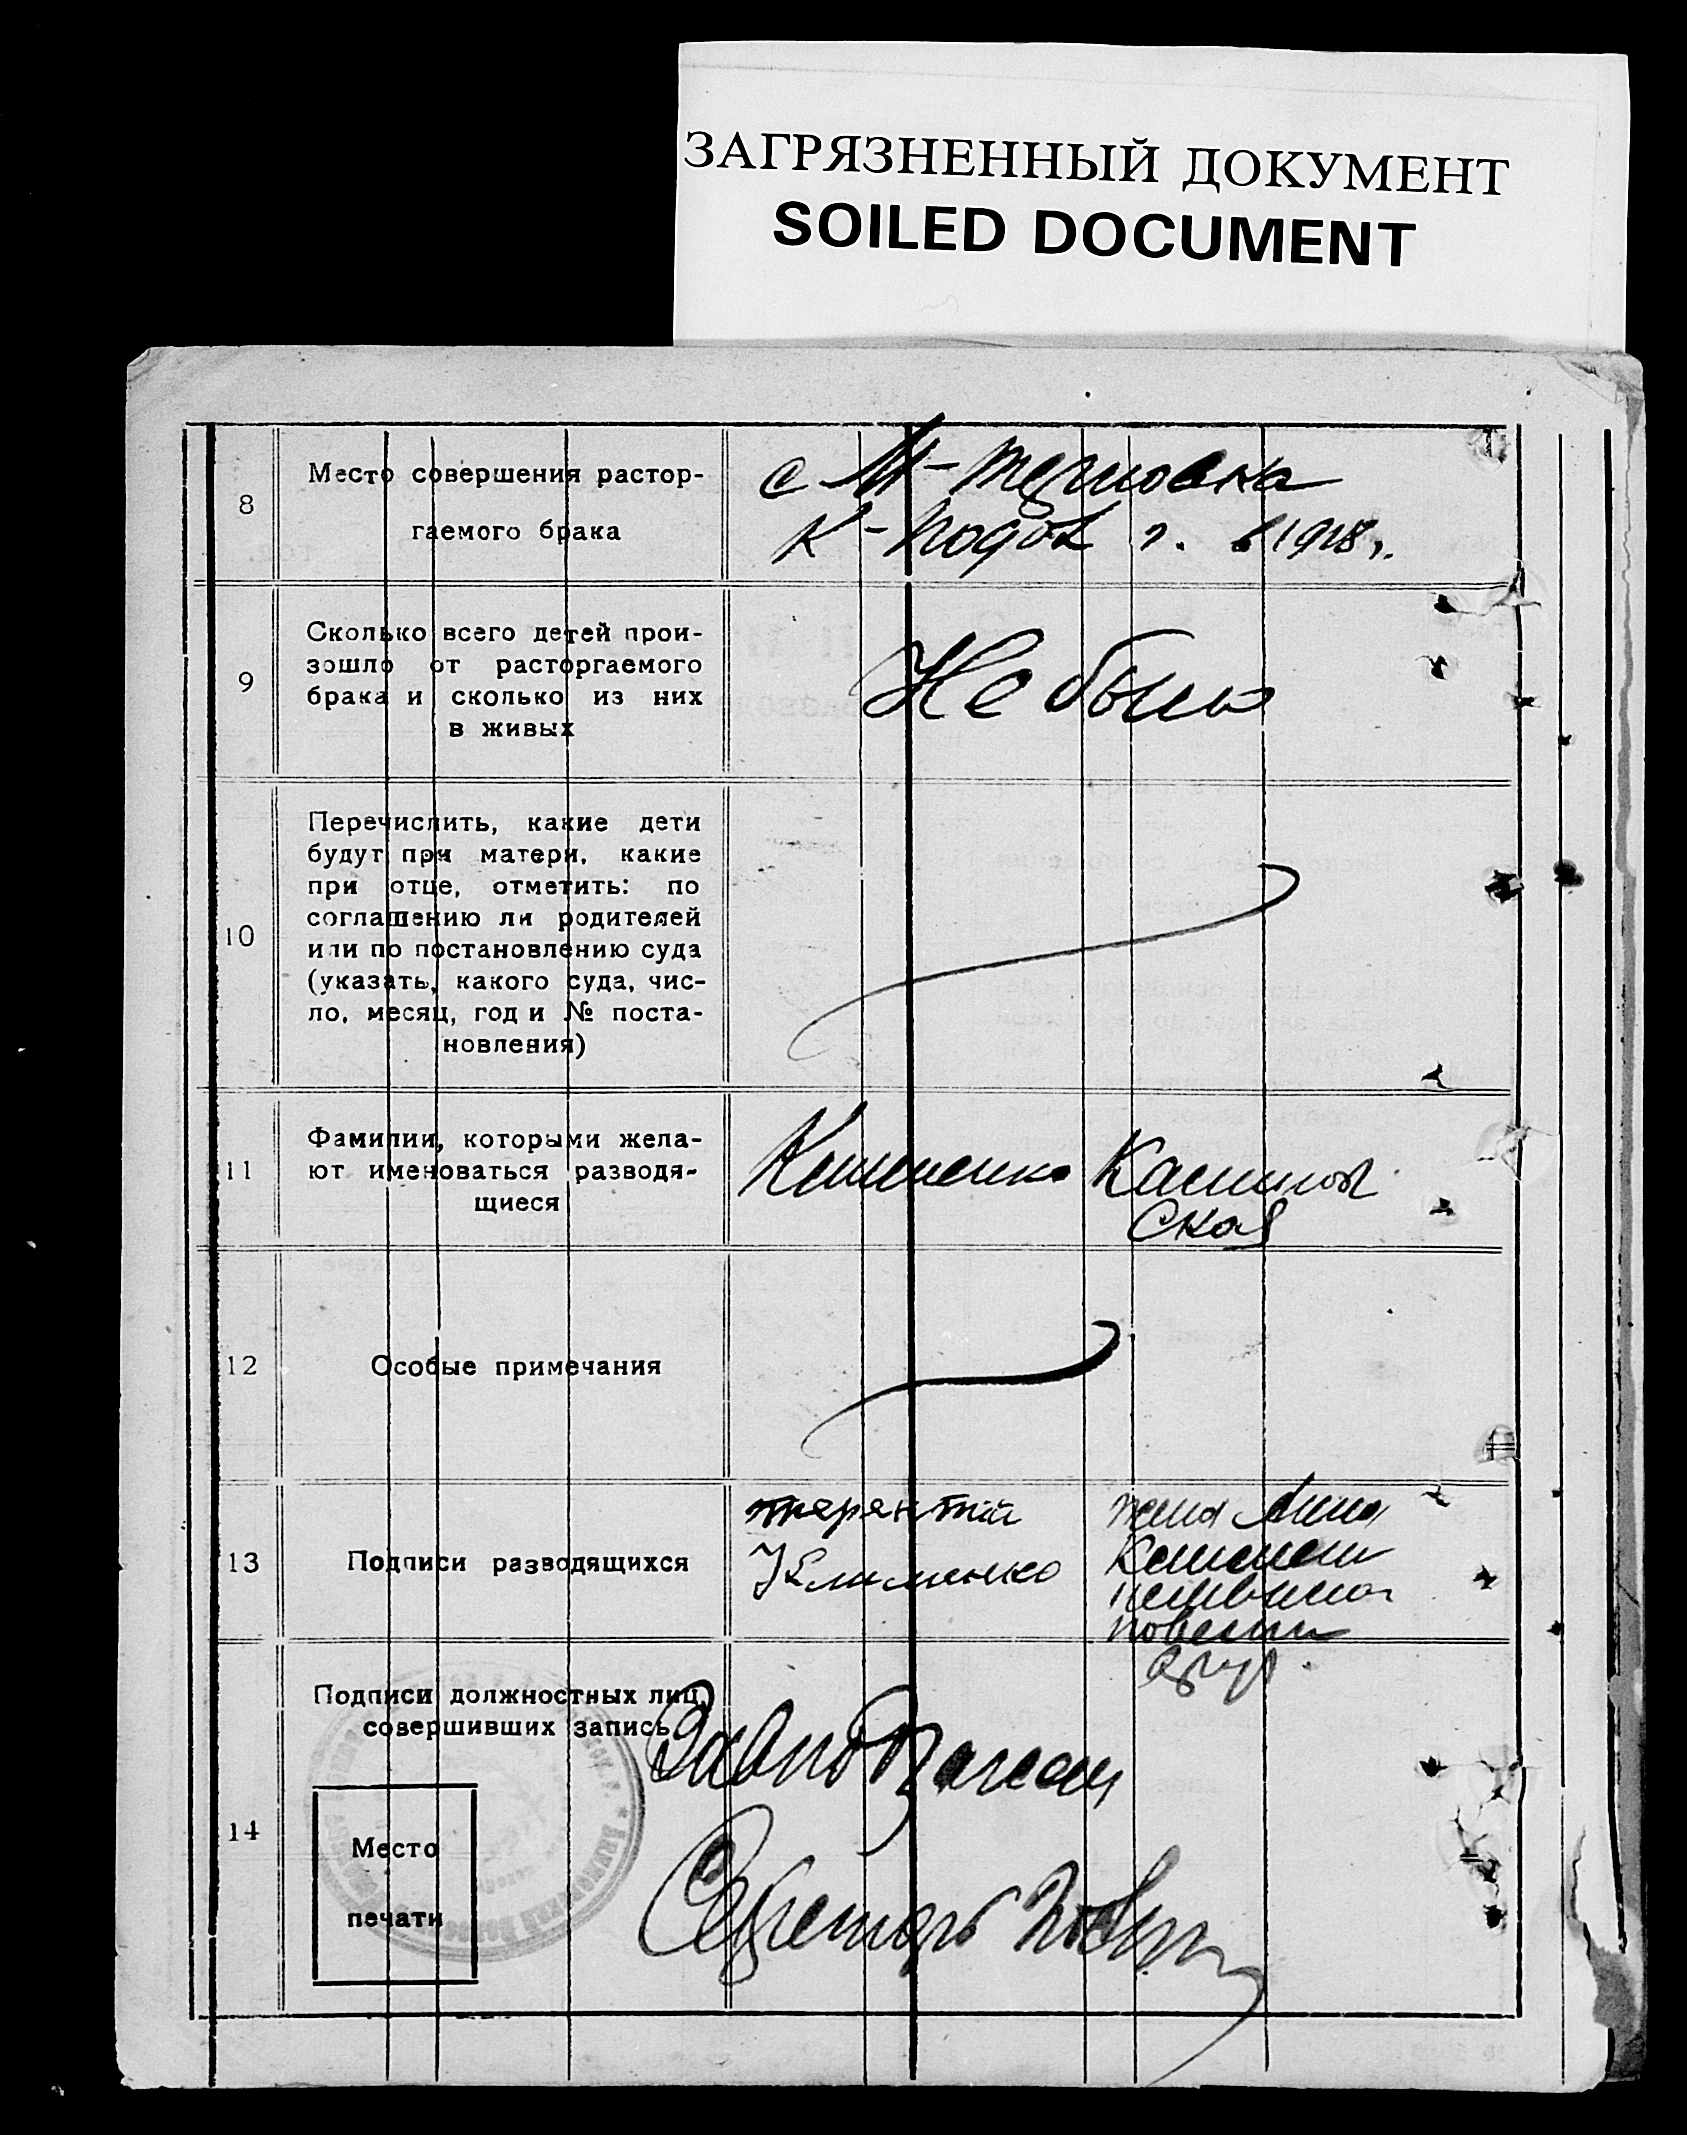 ЗАГРЯЗНЕННЫЙ ДОКУМЕНТ
SOILED DOCUMENT
8
Место совершения растор-
гаемого брака
с М-терновка
К-Подол г. в 1918 г.
9
Сколько всего детей прои-
зошло от расторгаемого
брака и сколько из них
в живых
Не было
10
Перечислить, какие дети
будут при матери, какие
при отце, отметить: по
соглашению ли родителей
или по постановлению суда
(указать, какого суда, чис-
ло, месяц, год и № поста-
новления)
11
Фамилии, которыми жела-
ют именоваться разводя-
щиеся
Клименко
ская
12
Особые примечания
13
Подписи разводящихся
терентий
Клименко
жена Анна
14
Подписи должностных лиц,
совершивших запись
Место
печати
Секретарь